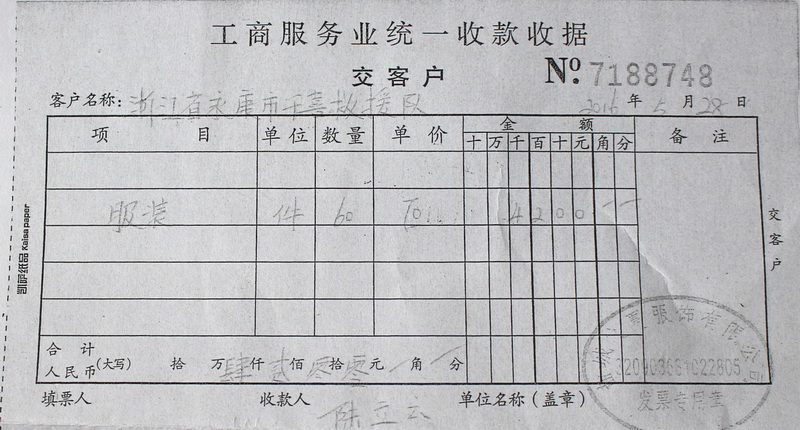 工商服务业统一收款收据
交客户 Nº 7188748
客户名称：浙江省永康市千喜救援队 2016 年 5 月 28 日
项 目 单位 数量 单价 金 额 备 注
十 万 千 百 十 元 角 分
服装 件 60 70 4 2 0 0
合 计
人民币 (大写) 拾 万 肆 仟 贰 佰 零 拾 零 元 角 分
填票人 收款人 陈立云 单位名称（盖章）
交客户
凯萨纸品 Kaisa paper
服饰有限公司
发票专用章